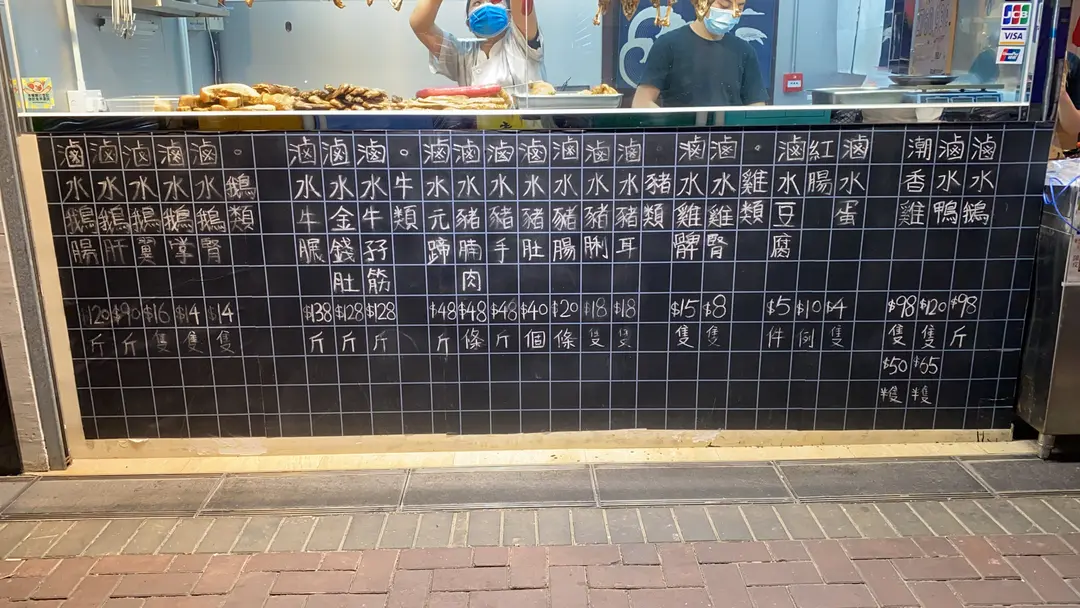 JCB
VISA
滷水鵝 $98 斤
滷水鴨 $120 隻 $65 半隻
潮香雞 $98 隻 $50 半隻
滷水蛋 $4 隻
紅腸 $10 例
滷水豆腐 $5 件
。雞類
滷水雞腎 $8 隻
滷水雞髀 $15 隻
。豬類
滷水豬耳 $18 隻
滷水豬脷 $18 隻
滷水豬腸 $20 條
滷水豬肚 $40 個
滷水豬手 $48 斤
滷水豬腩肉 $48 條
滷水元蹄 $48 斤
。牛類
滷水牛孖筋 $128 斤
滷水金錢肚 $128 斤
滷水牛𦟌 $138 斤
。鵝類
滷水鵝腎 $14 隻
滷水鵝掌 $14 隻
滷水鵝翼 $16 隻
滷水鵝肝 $90 斤
滷水鵝腸 $120 斤